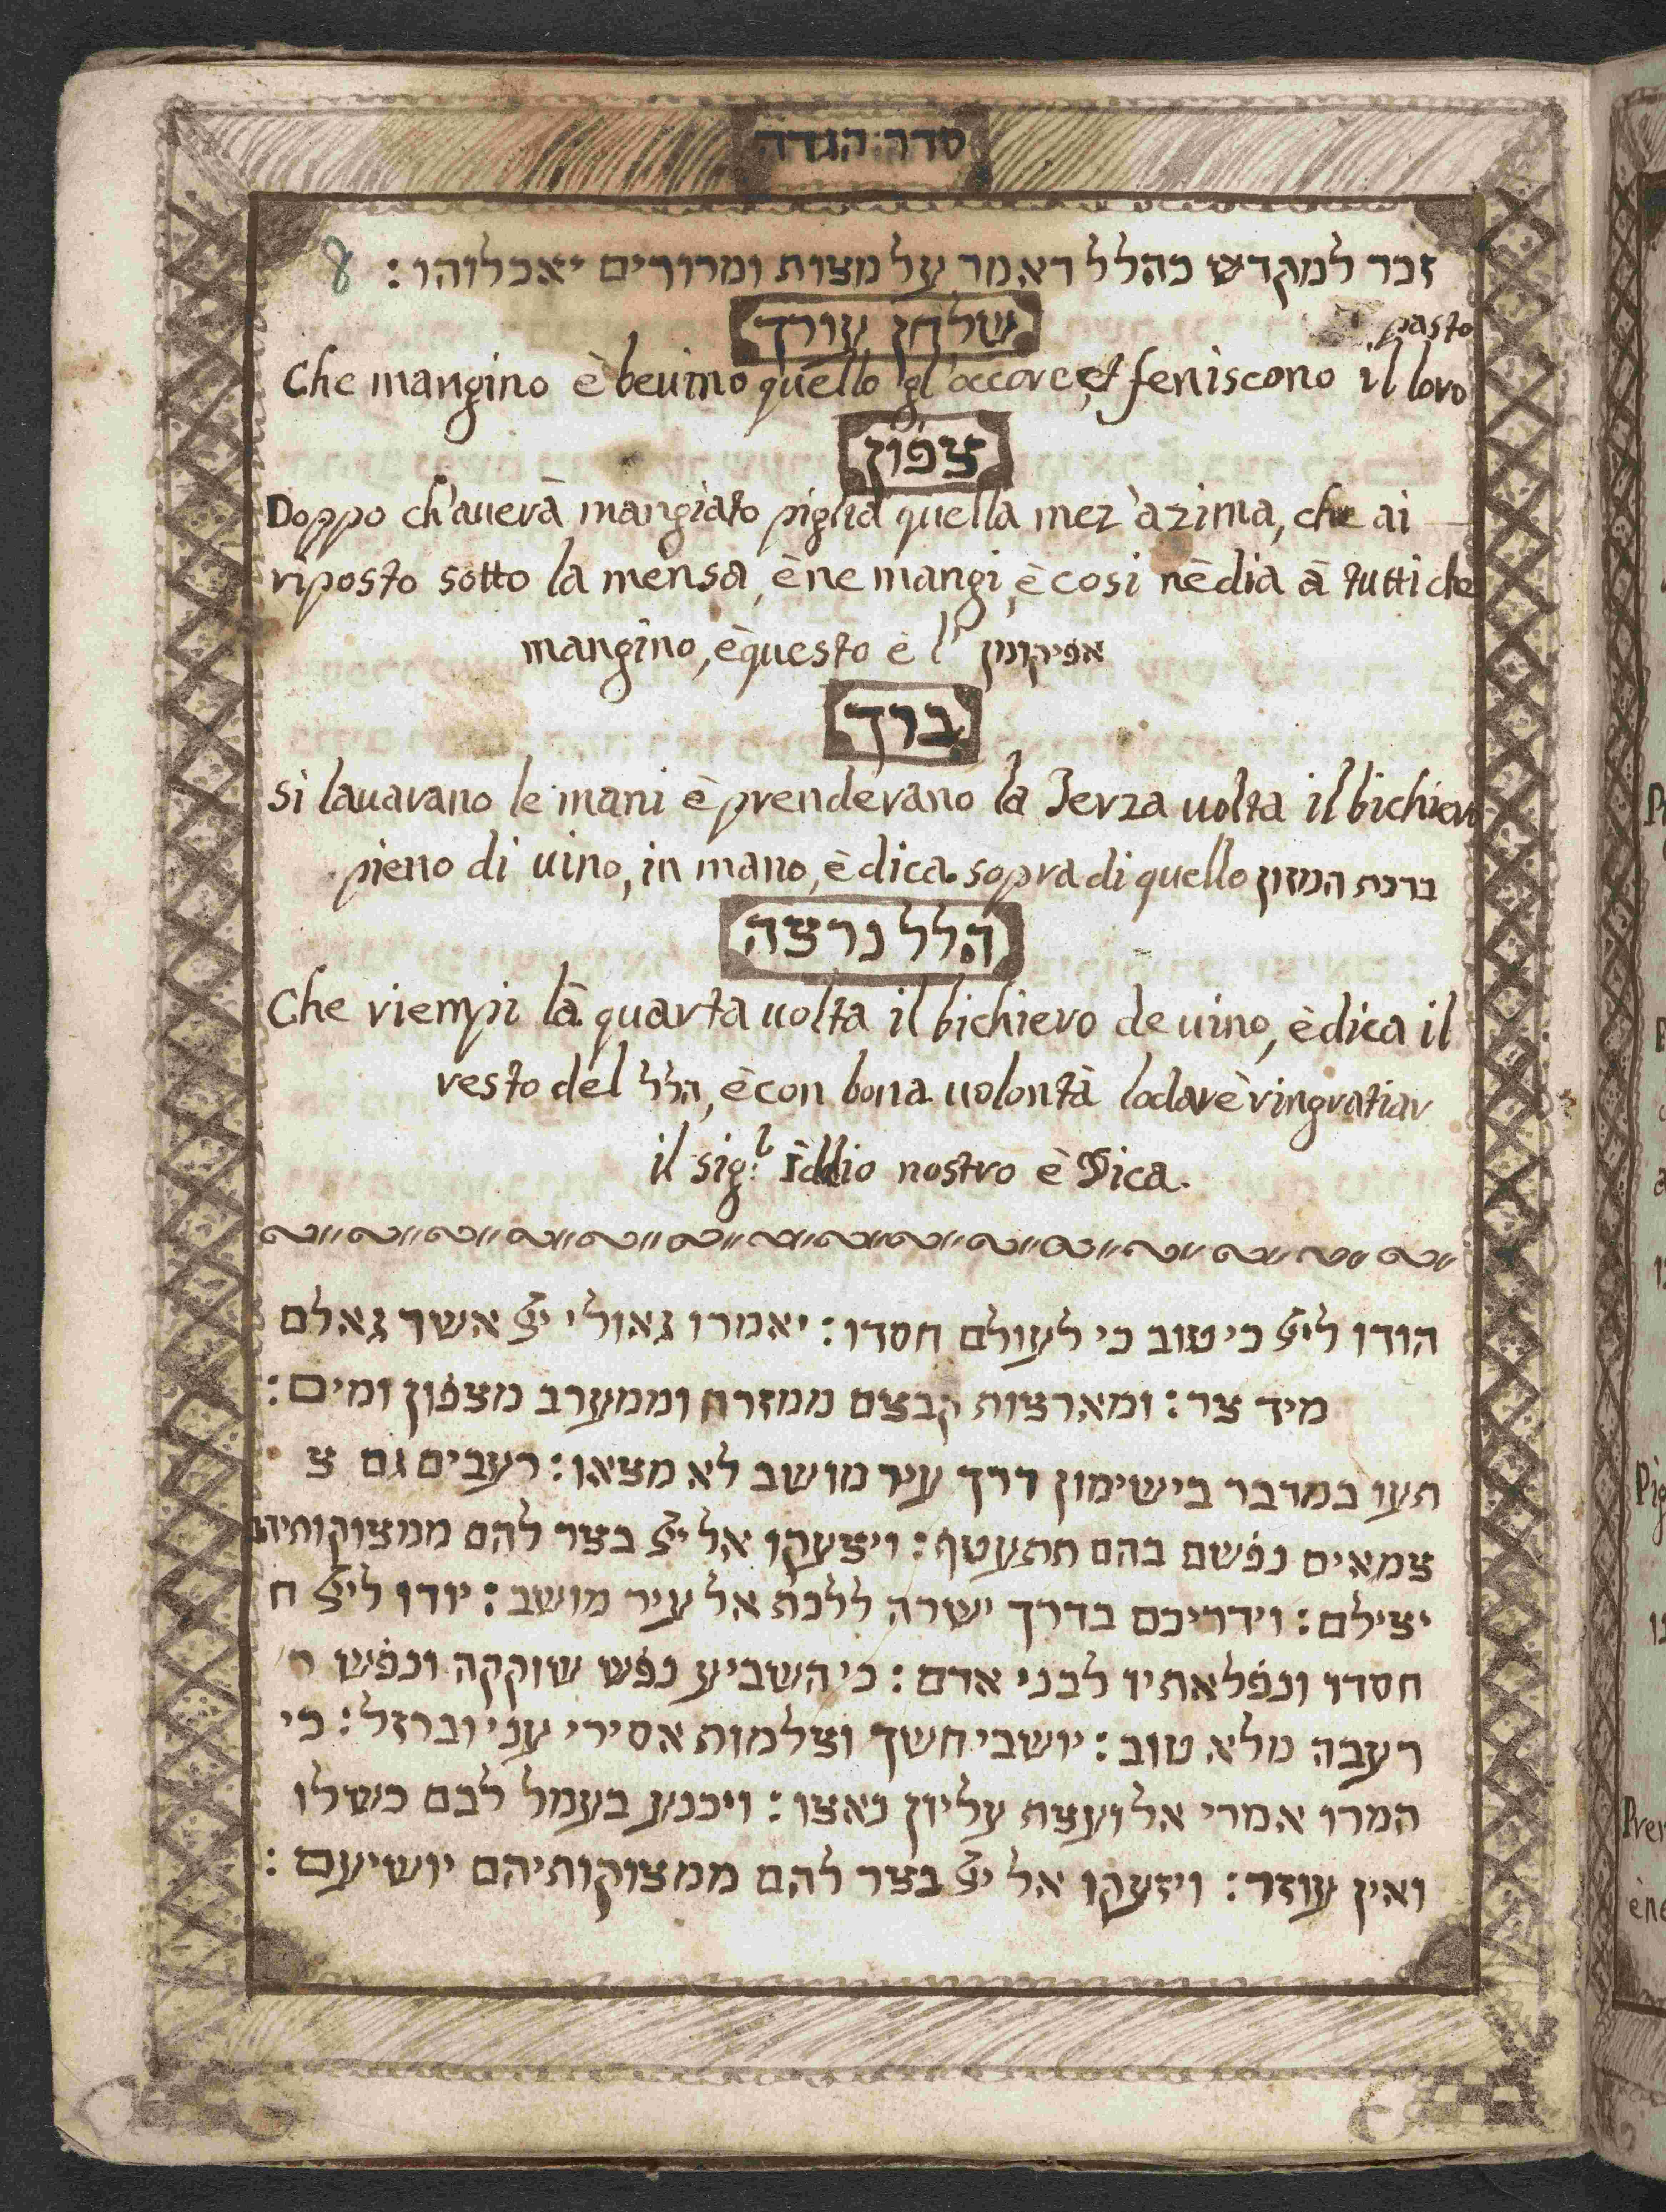 סדר הגדה
זכר למקדש כהלל דאמר על מצות ומרורים יאכלוהו : 8
שלחן עורך
pasto
Che mangino è beuino quello gl'occore, et feniscono il loro
צפון
Doppo ch'auerà mangiato piglia quella mez'azima, che ai
riposto sotto la mensa, è ne mangi, è cosi nè dia à tutti che
mangino, è questo è l' אפיקומן
ברך
si lauarano le mani è prenderano la Terza uolta il bichiero
pieno di uino, in mano, è dica sopra di quello ברכת המזון
הלל נרצה
Che riempi là quarta uolta il bichiero de uino, è dica il
resto del הלל, è con bona uolontà lodar è ringratiar
il sig.r Iddio nostro è Dica.
הודו ליי כי טוב כי לעולם חסדו : יאמרו גאולי יי אשר גאלם
מיד צר : ומארצות קבצם ממזרח וממערב מצפון ומים :
תעו במדבר בישימון דרך עיר מושב לא מצאו : רעבים גם צ
צמאים נפשם בהם תתעטף : ויצעקו אל יי בצר להם ממצוקותיהם
יצילם : וידריכם בדרך ישרה ללכת אל עיר מושב : יודו ליי ח
חסדו ונפלאתיו לבני אדם : כי השביע נפש שוקקה ונפש ר
רעבה מלא טוב : יושבי חשך וצלמות אסירי עני וברזל : כי
המרו אמרי אל ועצת עליון נאצו : ויכנע בעמל לבם כשלו
ואין עוזר : ויזעקו אל יי בצר להם ממצוקותיהם יושיעם :